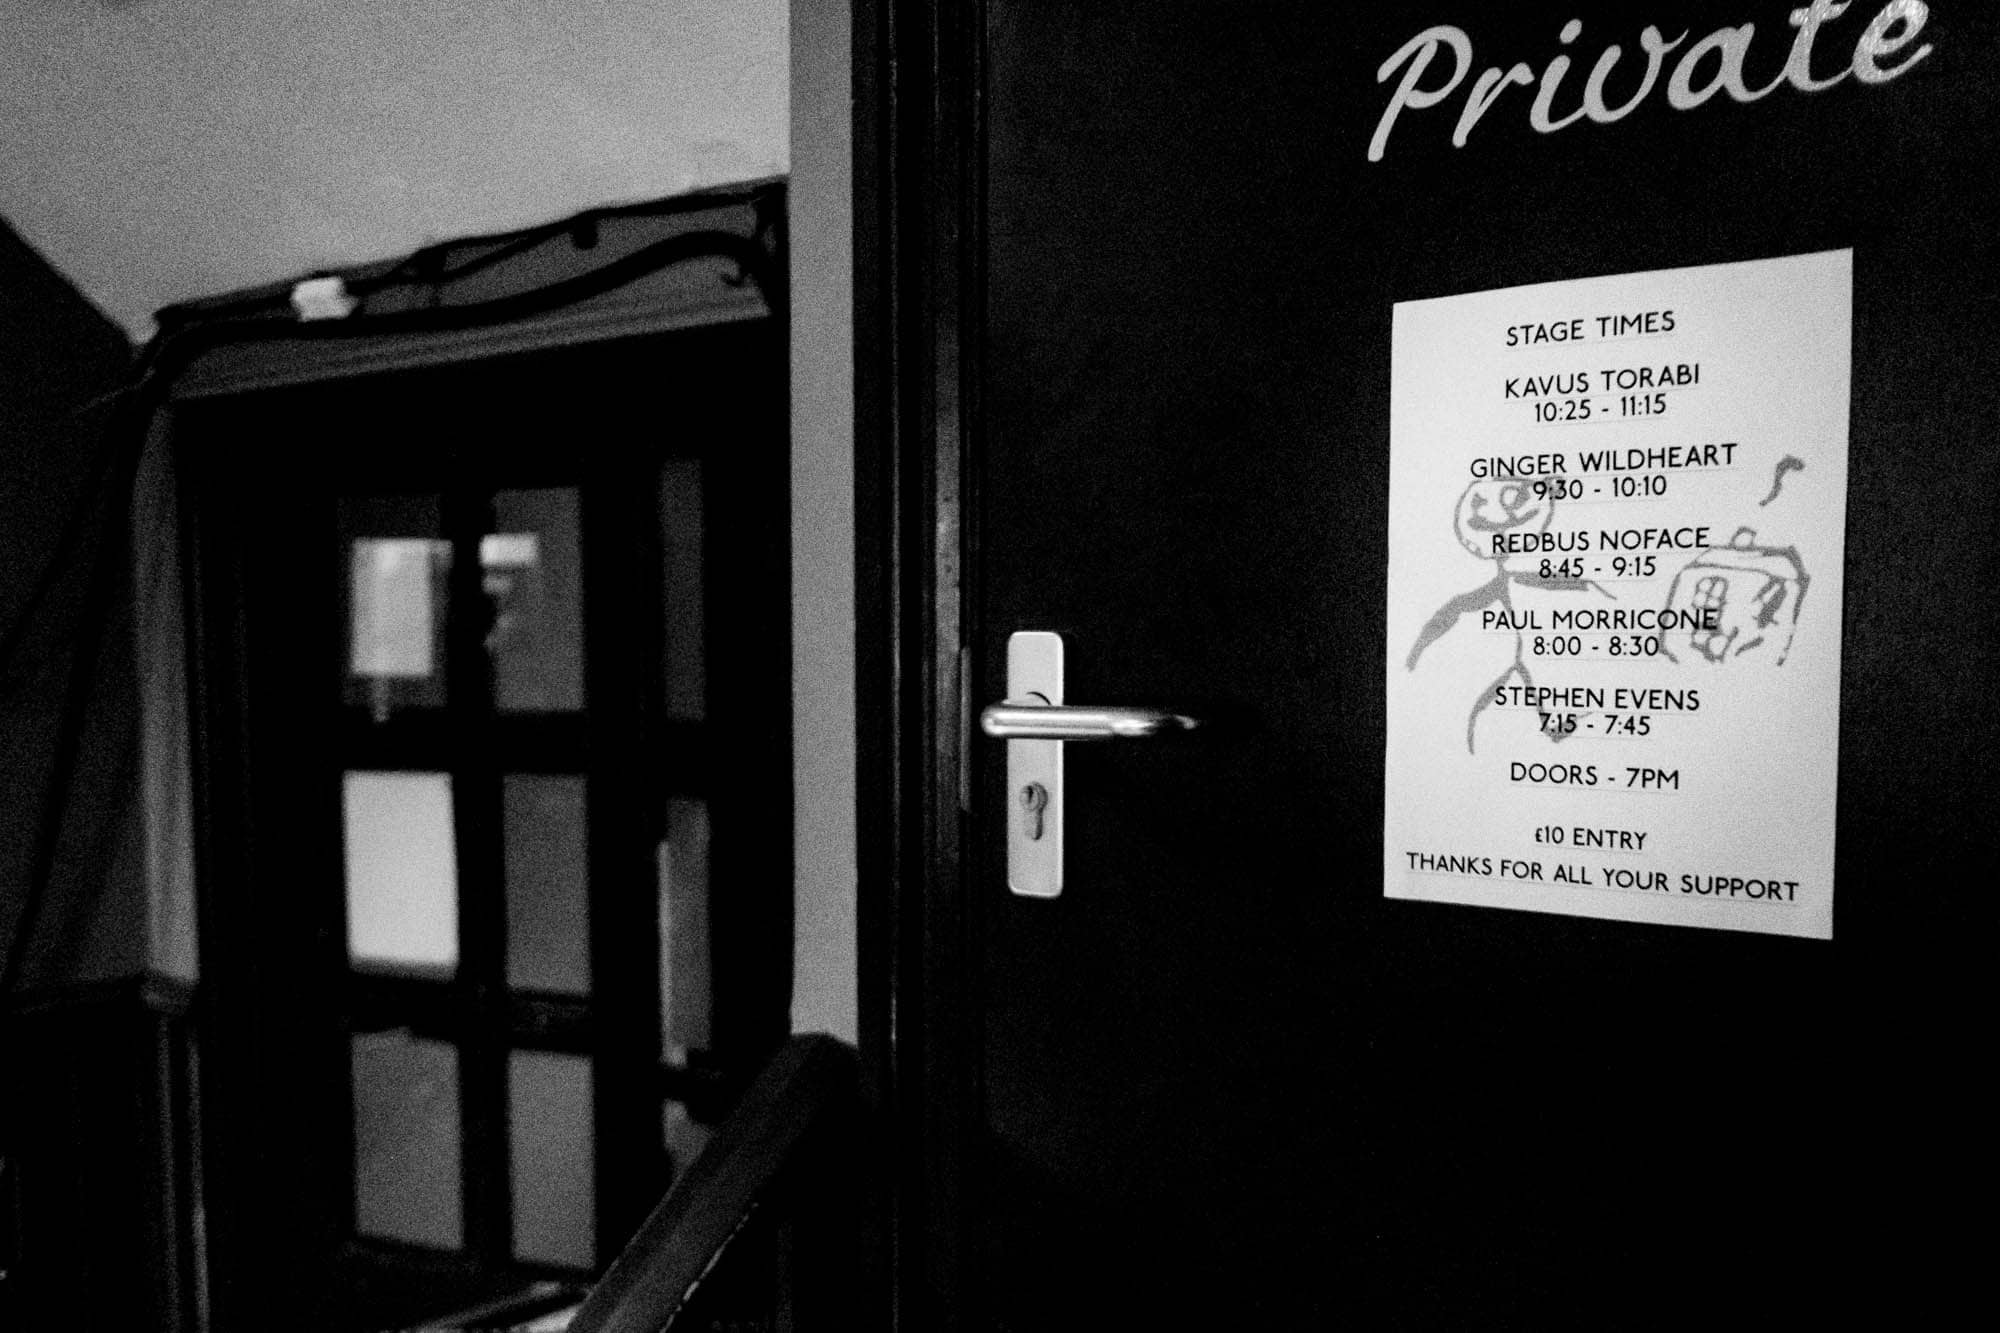 Private
STAGE TIMES
KAVUS TORABI
10:25 - 11:15
GINGER WILDHEART
9:30 - 10:10
REDBUS NOFACE
8:45 - 9:15
PAUL MORRICONE
8:00 - 8:30
STEPHEN EVENS
7:15 - 7:45
DOORS - 7PM
£10 ENTRY
THANKS FOR ALL YOUR SUPPORT